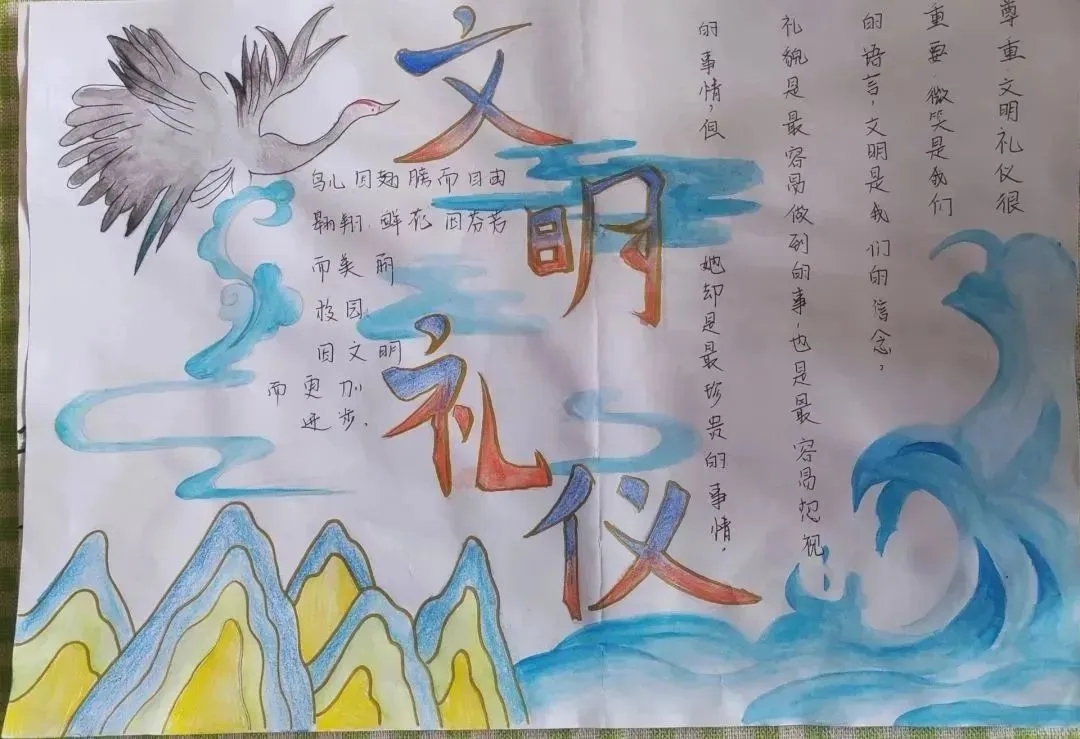 文明礼仪
鸟儿因翅膀而自由
翱翔.鲜花因芬芳
而美丽
校园
因文明
而更加
进步.
尊重文明礼仪很
重要.微笑是我们
的语言,文明是我们的信念,
礼貌是最容易做到的事,也是最容易忽视
的事情,但她却是最珍贵的事情,